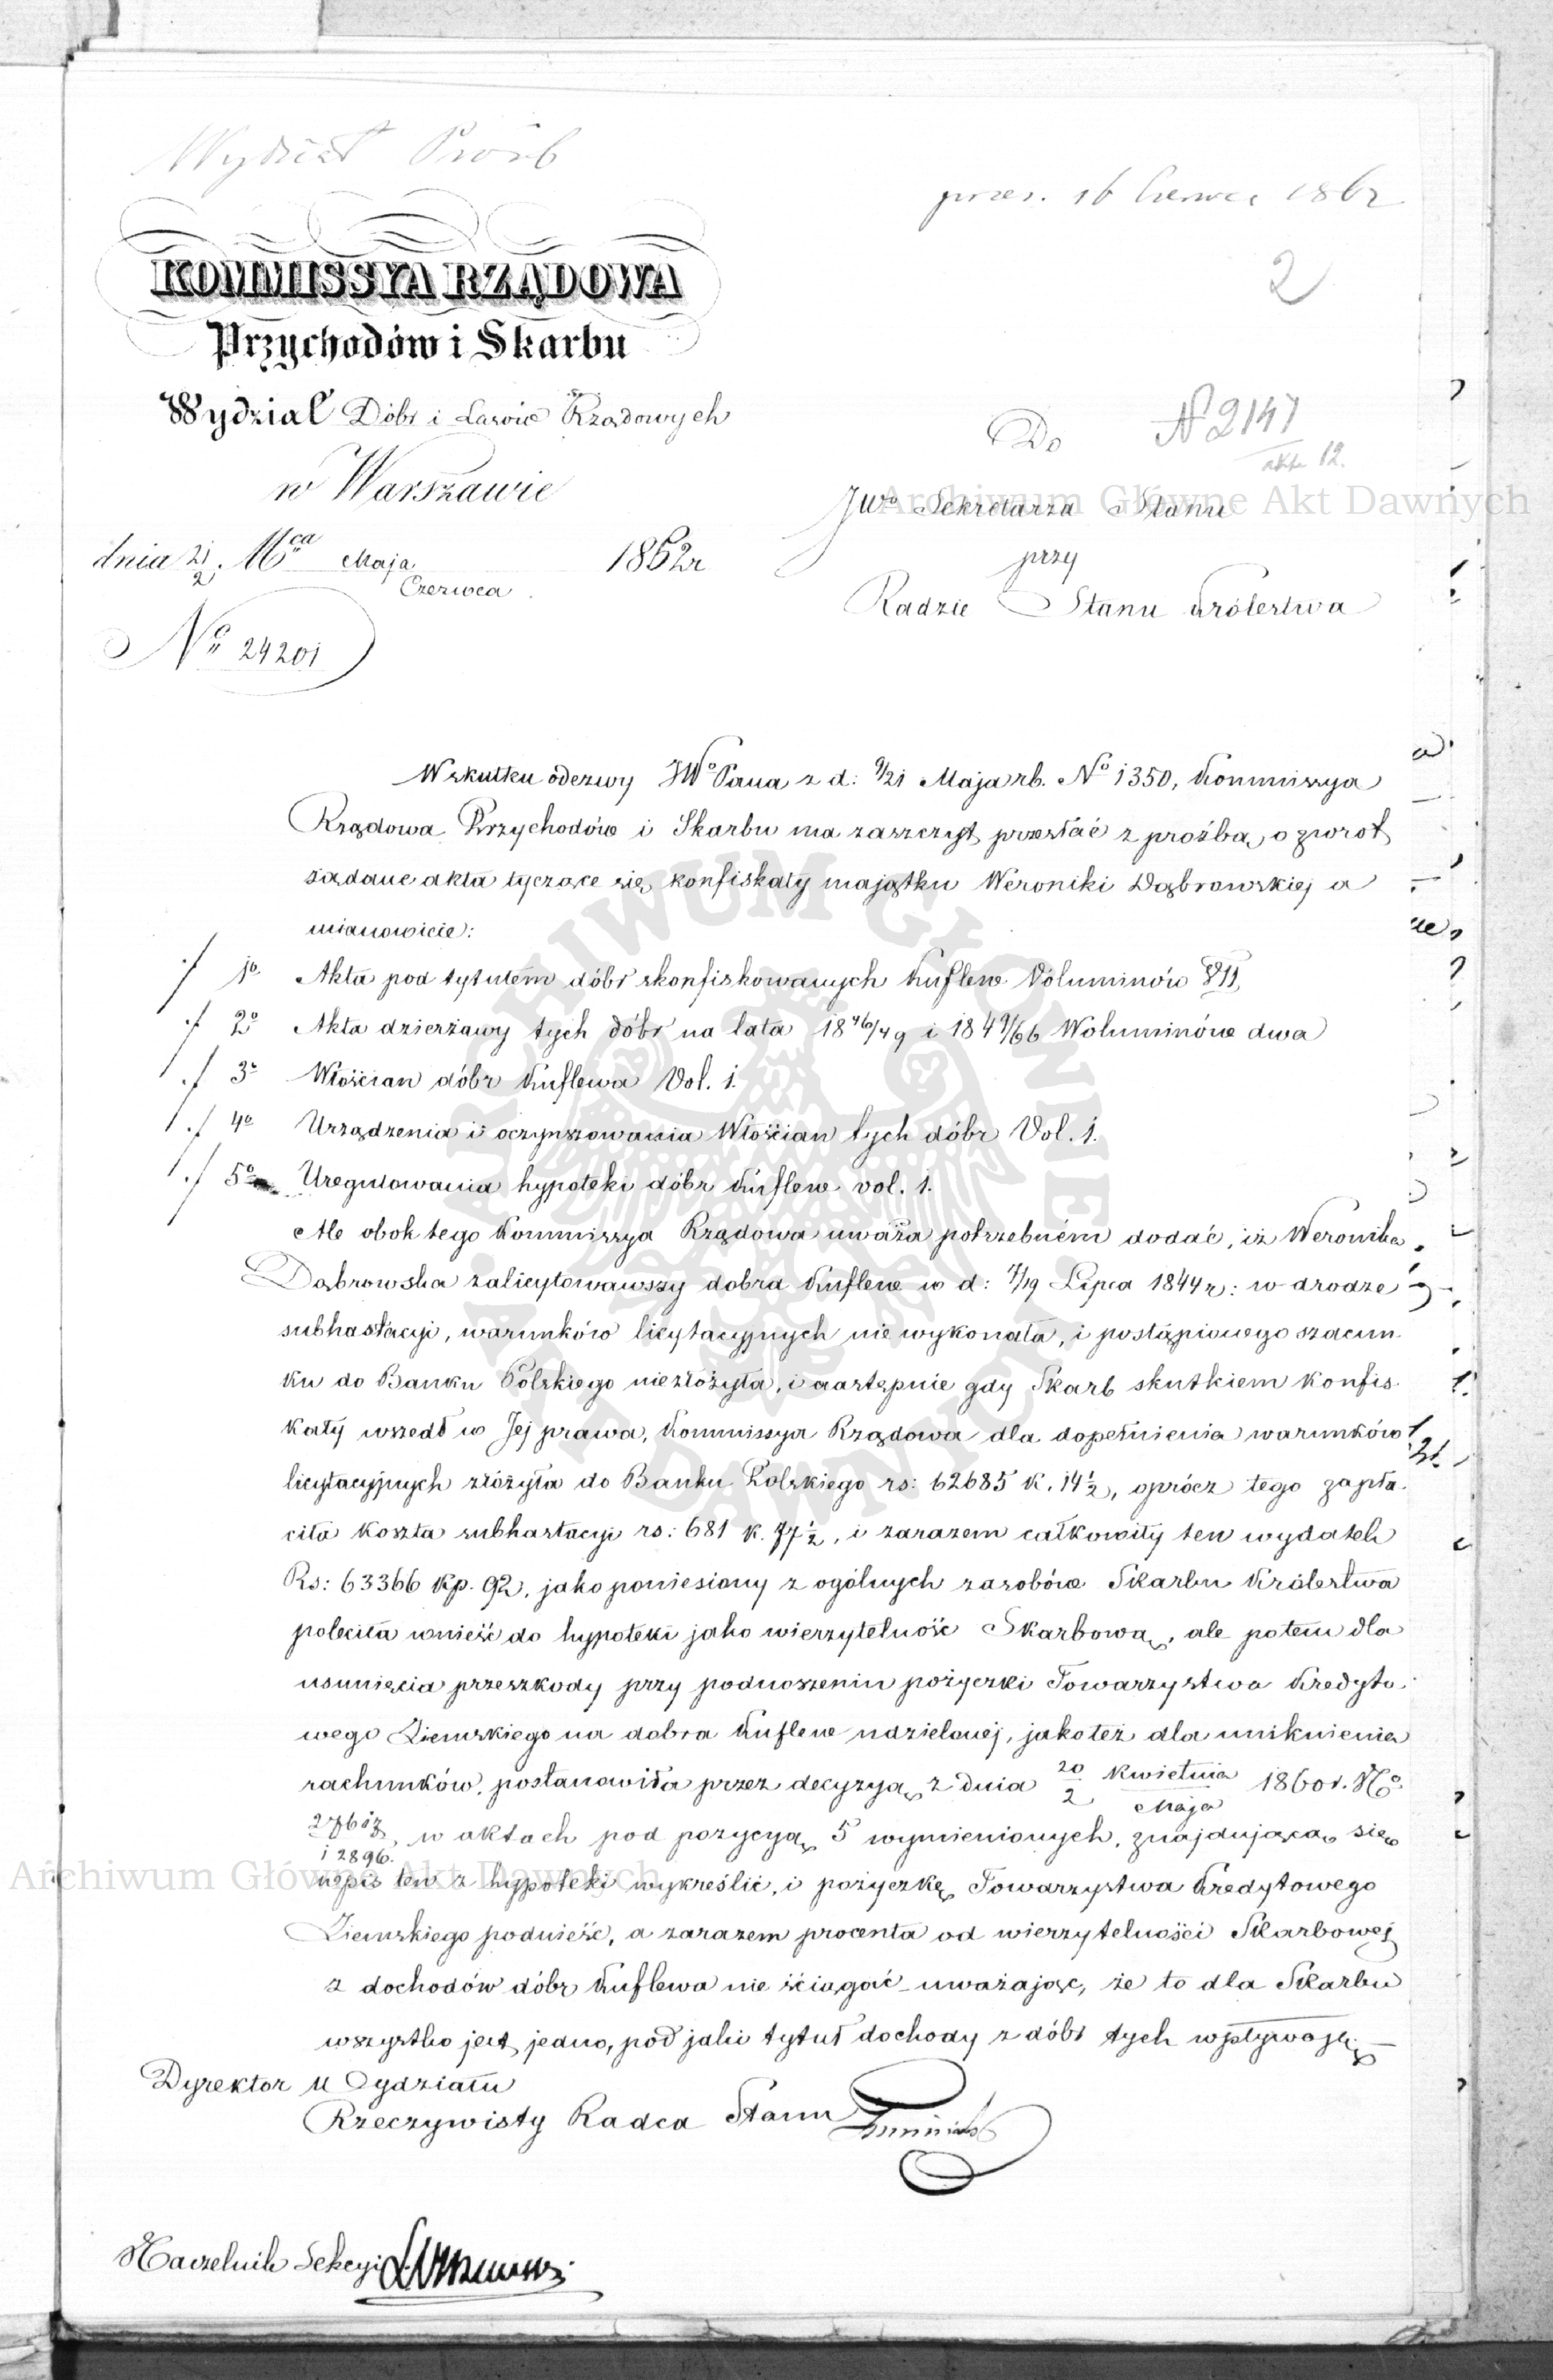 Wydział Próśb
prez. 16 Czerwca 1862
2
KOMMISSYA RZĄDOWA
Przychodów i Skarbu
Wydział Dóbr i Lasów Rządowych
w Warszawie
dnia 21/2 Mca Maja/Czerwca 1862 r
No 24201
N 2147
akta 12.
Do
JWo Sekretarza Stanu
przy
Radzie Stanu Królestwa
Archiwum Główne Akt Dawnych
Wskutku odezwy JWo Pana z d: 9/21 Maja rb. No 1350, Kommissya
Rządowa Przychodów i Skarbu ma zaszczyt przesłać z prośbą o zwrot
żądane akta tyczące się konfiskaty majątku Weroniki Dąbrowskiej a
mianowicie:
1o Akta pod tytułem dóbr skonfiskowanych Kuflew Voluminów VII,
2o Akta dzierżawy tych dóbr na lata 1846/49 i 1849/66 Woluminów dwa
3o Włościan dóbr Kuflewa Vol. 1.
4o Urządzenia i oczynszowania Włościan tych dóbr Vol. 1.
5o Uregulowania hypoteki dóbr Kuflew vol. 1.
Ale obok tego Kommissya Rządowa uważa potrzebném dodać, iż Weronika
Dąbrowska zalicytowawszy dobra Kuflew w d: 7/19 Lipca 1844 r: w drodze
subhastacyi, warunków licytacyjnych nie wykonała, i postąpionego szacun-
ku do Banku Polskiego niezłożyła, i następnie gdy Skarb skutkiem konfis-
katy wszedł w Jej prawa, Kommissya Rządowa dla dopełnienia warunków
licytacyjnych złożyła do Banku Polskiego rs: 62685 k. 14½, oprócz tego zapła-
ciła koszta subhastacyi rs: 681 k. 77½, i zarazem całkowity ten wydatek
Rs: 63366 kp. 92, jako poniesiony z ogólnych zasobów Skarbu Królestwa
poleciła wnieść do hypoteki jako wierzytelność Skarbową, ale potem dla
usunięcia przeszkody przy podnoszeniu pożyczki Towarzystwa Kredyto-
wego Ziemskiego na dobra Kuflew udzielonej, jakoteż dla uniknienia
rachunków, postanowiła przez decyzyą z dnia 20 Kwietnia/2 Maja 1860 r. No
i 2896. w aktach pod pozycyą 5 wymienionych, znajdującą się
wpis ten z hypoteki wykreślić, i pożyczkę Towarzystwa Kredytowego
Ziemskiego podnieść, a zarazem procenta od wierzytelności Skarbowej
z dochodów dóbr Kuflewa nie ściągać uważając, że to dla Skarbu
wszystko jest jedno, pod jaki tytuł dochody z dóbr tych wpływają.
Archiwum Główne Akt Dawnych
Dyrektor Wydziału
Rzeczywisty Radca Stanu
Naczelnik Sekcyi
ARCHIWUM GŁÓWNE AKT DAWNYCH